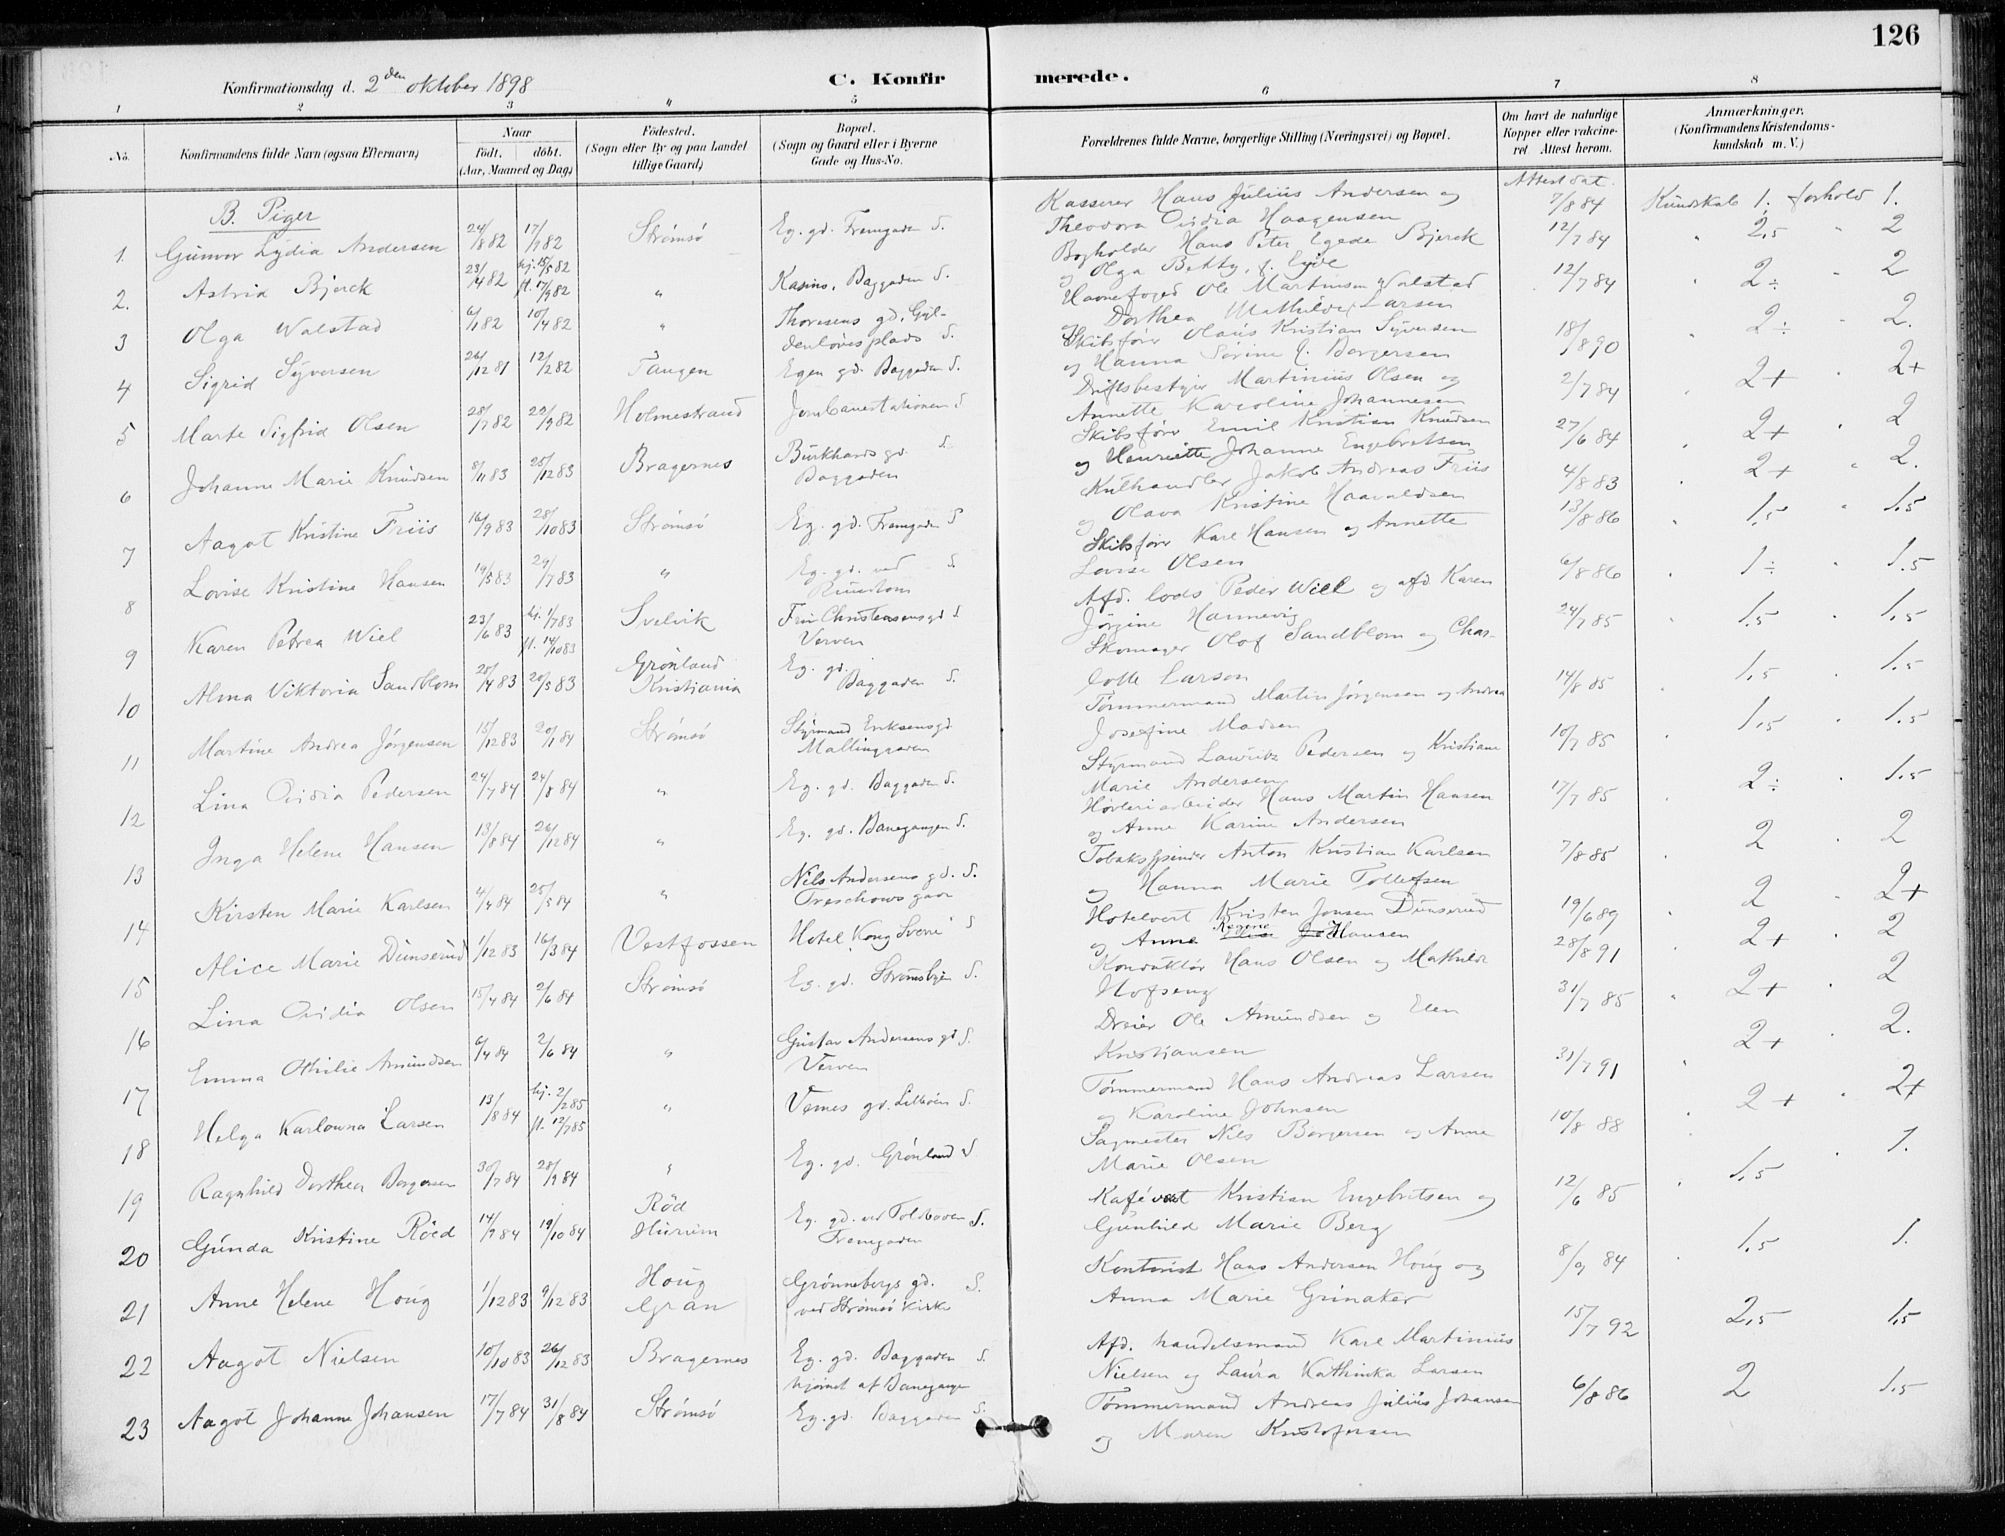 126
Konfirmationsdag d. 2den oktober 1898
C. Konfirmerede.
1 2 3 4 5 6 7 8
No.
Konfirmandens fulde Navn (ogsaa Efternavn)
Naar
født. døbt.
(Aar, Maaned og Dag)
Fødested.
(Sogn eller By og paa Landet
tillige Gaard)
Bopæl.
(Sogn og Gaard eller i Byerne
Gade og Hus-No.
Forældrenes fulde Navne, borgerlige Stilling (Næringsvei) og Bopæl.
Om havt de naturlige
Kopper eller vaccine-
ret Attest herom.
Anmærkninger.
(Konfirmandens Kristendoms-
kundskab m. V.)
Attest dat.
B. Piger
1. Gunvor Lydia Andersen 24/8 82 17/7 82 Strømsø Eg. gd. Fremgaden S.
Kasserer Hans Julius Andersen og
Theodora Ovidia Haagensen
7/8 84 Kundskab 1. forhold 1.
2. Astrid Bjerck 23/4 82 hj. 15/5 82 fl. 17/9 82 " Kasino, Baggaden S.
Bogholder Hans Peter Egede Bjerck
og Olga Betty, f. Eyde
12/7 84 " 2,5 " 2
3 Olga Walstad 6/1 82 10/4 82 " Thoresens gd. Gyl-
denløvesplads S.
Havnefoged Ole Martinsen Walstad
og Dorthea Mathilde Larsen
12/7 84 " 2÷ " 2
4 Sigrid Syversen 26/12 81 12/2 82 Tangen Egen gd. Baggaden S.
Skibsfører Olaus Kristian Syversen
og Hanna Sørine f. Borgersen
18/8 90 " 2÷ " 2.
5 Marte Sigfrid Olsen 28/7 82 29/9 82 Holmestrand Jernbanestationen S
Driftsbestyrer Martinius Olsen og
Annette Karoline Johannesen
2/7 84 " 2+ " 2+
6 Johanne Marie Knudsen 8/11 83 25/12 83 Bragernes Burkhards gd. S.
Baggaden
Skibsfører Emil Kristian Knudsen
og Henriette Johanne Engebretsen
27/6 84 " 2+ " 2
7 Aagot Kristine Friis 16/9 83 28/10 83 Strømsø Eg. gd. Fremgaden S
Kulhandler Jakob Andreas Friis
og Olava Kristine Haavaldsen
4/8 83 " 2+ " 2.
8 Lovise Kristine Hansen 19/5 83 29/7 83 " Eg. gd. ved S
Skibsfører Karl Hansen og Annette
Lovise Olsen
13/8 86 " 1,5 " 1,5
9 Karen Petrea Wiel 23/6 83 hj. 1/7 83 fl. 14/10 83 Svelvik Fru Christensens gd S.
Verven
Afd. lods Peder Wiel og afd. Karen
Jørgine Hannevig
6/8 86 " 1÷ " 1.5
10 Alma Viktoria Sandblom 25/4 83 20/5 83 Grønland
Kristiania Eg. gd.
Baggaden S.
Skomager Olof Sandblom og Char-
lotte Larson
24/7 85 " 1.5 " 1.5
11 Martine Andrea Jørgensen 15/12 83 20/1 84 Strømsø Styrmand Eriksens gd
Tømmermand Martin Jørgensen og Andrea
Josefine Madsen
14/8 85 " 1,5 " 1.5
12 Lina Ovidia Pedersen 24/7 84 24/8 84 " Eg. gd. Baggaden S.
Styrmand Lauritz Pedersen og Kristiane
Marie Andersen
10/7 85 " 1,5 " 1.5
13 Inga Helene Hansen 13/8 84 26/12 84 " Eg. gd. Banegangen S.
Høvleriarbeider Hans Martin Hansen
og Anne Karine Andersen
17/7 85 " 2÷ " 1.5
14 Kirsten Marie Karlsen 4/4 84 25/5 84 " Nils Andersens gd. S.
Treschows gade
Tobakspinder Anton Kristian Karlsen
og Hanna Marie Tollefsen
7/8 85 " 2 " 2
15 Alice Marie Dunserud 1/12 83 16/3 84 Vestfossen Hotel "Kong Sverre" S
Hotelvert Kristen Jonsen Dunserud
og Anne Regine Hansen
19/6 89 2 2+
16 Lina Ovidia Olsen 15/4 84 2/6 84 Strømsø Eg. gd. Strømsbyen S.
Konduktør Hans Olsen og Mathilde
Hofseng
28/8 91 2+ " 2
17 Emma Othilie Amundsen 6/4 84 2/6 84 " Gustav Andersens gd S.
Verven
Dreier Ole Amundsen og Elen
Kristiansen
31/7 85 " 2+ 2
18 Helga Karlowna Larsen 13/8 84 hj. 2/2 85 fl. 12/7 85 " Vemes gd. Lilleøen S.
Tømmermand Hans Andreas Larsen
og Karoline Johnsen
31/7 91 " 2+ " 2.
19 Ragnhild Dorthea Borgersen 30/7 84 28/9 84 " Eg. gd. Grønland S
Sagmester Nils Borgersen og Anne
Marie Olsen
10/8 88 " 2+ " 2+
20 Gunda Kristine Röed 14/9 84 19/10 84 Röd
Hurum Eg. gd. ved Toldboden S.
Fremgaden
Kafévert Kristian Engebretsen og
Gunhild Marie Berg
12/6 85 " 1,5 " 1.
21 Anne Helene Houg 1/12 83 9/12 83 Houg
Gran Grønnebergs gd. S.
ved Strømsø kirke
Kontorist Hans Andersen Houg og
Anna Marie Grinaker
8/9 84 " 1.5 1.
22 Aagot Nielsen 10/10 83 26/12 83 Bragernes Eg. gd. Baggaden S.
hjørnet af Banegangen
Afd. handelsmand Karl Martinius
Nielsen og Laura Kathinka Larsen
15/7 92 2,5 1,5
23 Aagot Johanne Johansen 17/7 84 31/8 84 Strømsø Eg. gd. Baggaden S.
Tømmermand Andreas Julius Johansen
og Maren Kristofersen
6/8 86 2 1.5